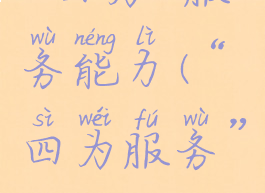 wù néng lì
务能力(“
sì wéi fú wù
四为服务”